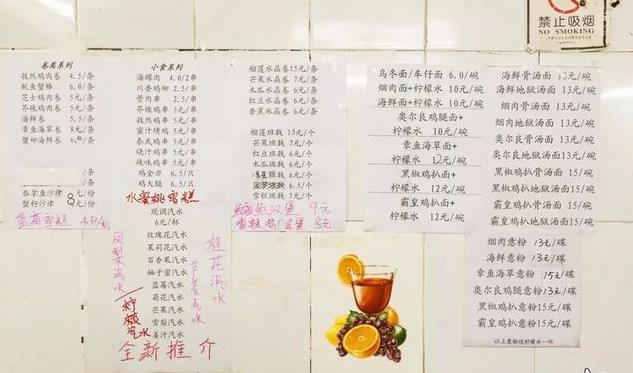 禁止吸烟
NO SMOKING
卷类系列
孜然鸡肉卷 4.5/条
鱿鱼蟹棒 6.0/条
芝士鸡肉卷 5元/条
芥辣鸡肉卷 5元/条
海鲜卷 5.5/条
章鱼海草卷 8元/条
蟹柳海鲜卷
/条
/条
吞拿鱼沙律 8元/份
蟹籽沙律 元/份
蓝莓雪糕
小食系列
海螺肉 4.0/2串
川香鸡柳 2.5/串
骨肉串 2.5/串
芥辣鸡串 5元/串
孜然鸡串 5元/串
蜜汁烤鸡 5元/串
泰式鸡串 5元/串
烧汁鸡串 5元/串
辣味鸡串 5元/串
鸡全亦 6.5/片
鸡大腿 6.5/个
水蜜桃雪糕
现调汽水
6元/杯
玫瑰花汽水
茉莉花汽水
百香果汽水
柚子蜜汽水
蓝莓汽水
菊花汽水
芒果汽水
雪梨汽水
姜汁汽水
凤梨汽水
柠檬汽水
芦荟汽水
桂花汽水
全新推介
榴莲水晶卷15元/条
芒果水晶卷 7元/条
木瓜水晶卷 6元/条
红豆水晶卷 6元/条
香蕉水晶卷 6元/条
榴莲班戟 15元/个
芒果班戟 7元/个
红豆班戟 6元/个
木瓜班戟 6元/个
菠萝班戟 6元/个
雪梨班戟 7元/个
鳕鱼汉堡 9元
乌冬面/车仔面 6.0/碗
烟肉面+柠檬水 10元/碗
海鲜面+柠檬水 10元/碗
奥尔良鸡腿面+
柠檬水 10元/碗
章鱼海草面+
柠檬水 12元/碗
黑椒鸡扒面+
柠檬水 12元/碗
霸皇鸡扒面+
柠檬水 12元/碗
海鲜骨汤面 13元/碗
海鲜地狱汤面 13元/碗
烟肉骨汤面 13元/碗
烟肉地狱汤面 13元/碗
奥尔良骨汤面 13元/碗
奥尔良地狱汤面 13元/碗
黑椒鸡扒骨汤面15元/碗
黑椒鸡扒地狱汤面15元/碗
霸皇鸡扒骨汤面15元/碗
霸皇鸡扒地狱汤面15元/碗
烟肉意粉 13元/碟
海鲜意粉 13元/碟
章鱼海草意粉 15元/碟
奥尔良鸡腿意粉13元/碟
黑椒鸡扒意粉15元/碟
霸皇鸡扒意粉15元/碟
以上意粉送柠檬水一杯